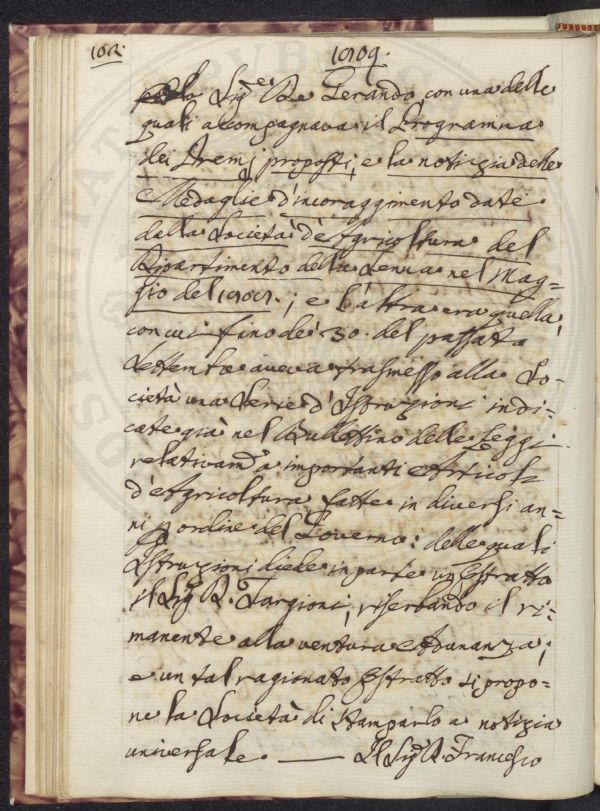 102.
1809.
Sig.e De Gerando, con una delle
quali accompagnava il Programma
dei Premj proposti, e la notizia delle
Medaglie d'incoraggimento date
dalla Società d'Agricoltura del
Dipartimento della Senna nel Mag=
gio del 1809.; e l'altra era quella,
con cui fino de' 30. del passato
Settembre aveva trasmesso alla So=
cietà una Serie d'Istruzioni indi=
cate già nel Bullettino delle Leggi
relativam.e a importanti Articoli
d'Agricoltura fatte in diversi an=
ni p ordine del Governo: delle quali
Istruzioni diede in parte un Estratto
il Sig.e D. Targioni, riserbando il ri=
manente alla ventura Adunanza;
e un tal ragionato Estratto si propo=
ne la Società di stamparlo a notizia
universale. — Il Sig.e D. Francesco